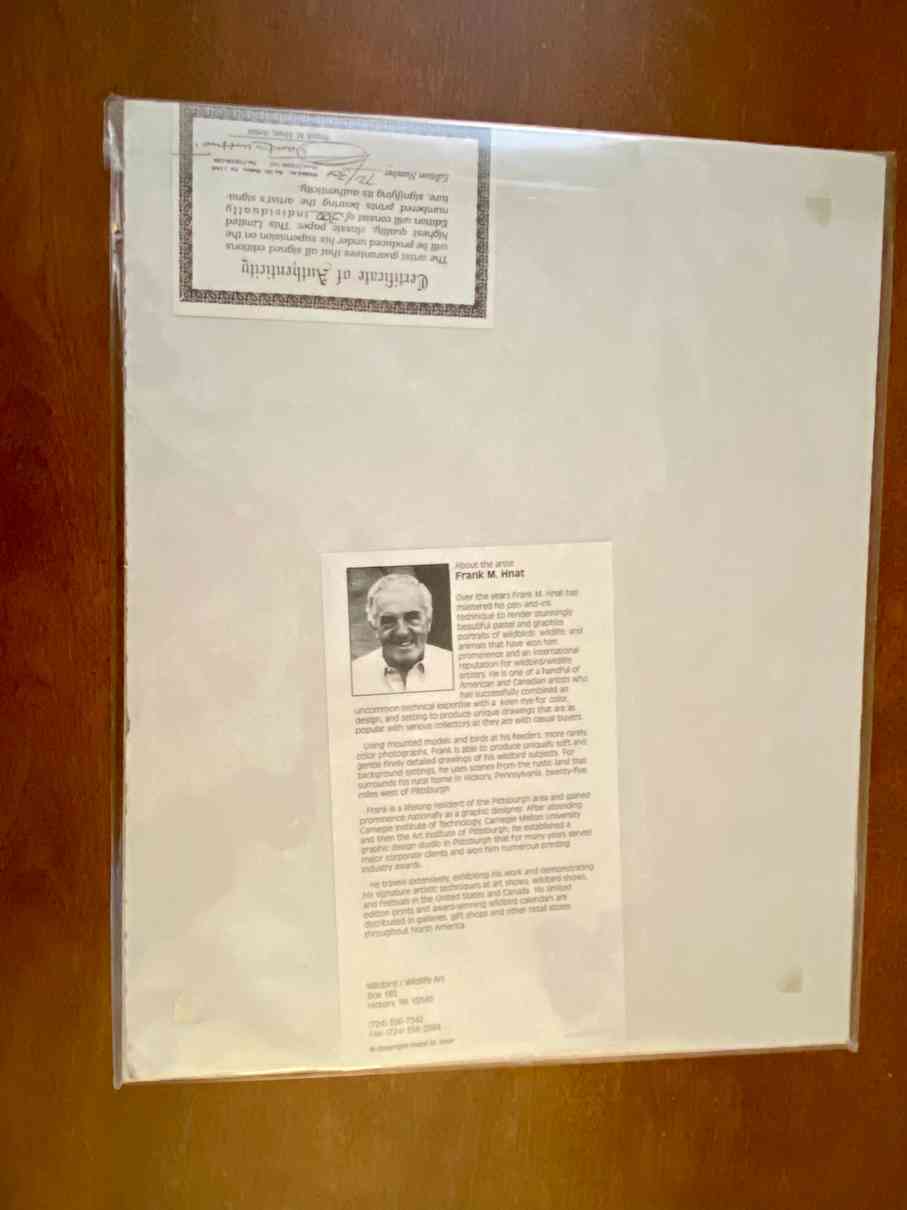 Certificate of Authenticity
The artist guarantees that all signed editions
will be produced under his supervision on the
highest quality, classic paper. This Limited
Edition will consist of 300 individually
numbered prints bearing the artist's signa-
ture, signifying its authenticity.
Edition Number 72/300
Frank M. Hnat, Artist
About the artist
Frank M. Hnat
Over the years Frank M. Hnat has
mastered his pen-and-ink
technique to render stunningly
beautiful pastel and graphite
portraits of wildbirds, wildlife and
animals that have won him
prominence and an international
reputation for wildbird/wildlife
artists. He is one of a handful of
American and Canadian artists who
has successfully combined an
uncommon technical expertise with a keen eye for color,
design, and setting to produce unique drawings that are as
popular with serious collectors as they are with casual buyers.
Using mounted models and birds at his feeders, more rarely
color photographs, Frank is able to produce uniquely soft and
gentle finely detailed drawings of his wildbird subjects. For
background settings, he uses scenes from the rustic land that
surrounds his rural home in Hickory, Pennsylvania, twenty-five
miles west of Pittsburgh.
Frank is a lifelong resident of the Pittsburgh area and gained
prominence nationally as a graphic designer. After attending
Carnegie Institute of Technology, Carnegie Mellon University
and then the Art Institute of Pittsburgh, he established a
graphic design studio in Pittsburgh that for many years served
major corporate clients and won him numerous printing
industry awards.
He travels extensively, exhibiting his work and demonstrating
his signature artistic techniques at art shows, wildbird shows,
and festivals in the United States and Canada. His limited
edition prints and award-winning wildbird calendars are
distributed in galleries, gift shops and other retail stores
throughout North America.
Wildbird / Wildlife Art
Box
Hickory, PA 15340
(724) 356-
Fax: (724) 356-
© Copyright Frank M. Hnat